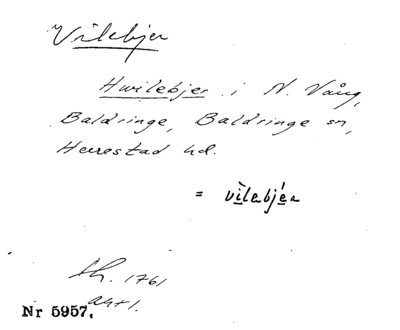 Vilebjer
Hwilebjer i N. Vång,
Baldringe, Baldringe sn,
Herrestad hd.
= vìlebjér
1761
akt 1.
Nr 5957.